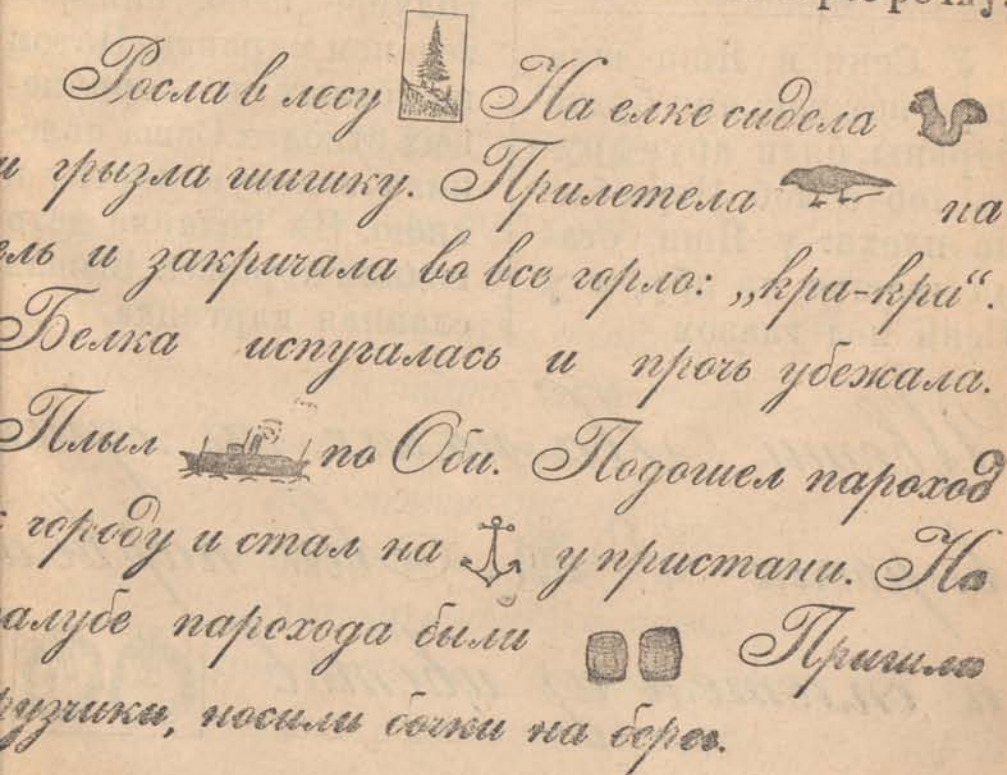 Росла в лесу На елке сидела
и грызла шишку. Прилетела на
ель и закричала во все горло: „кра-кра“.
Белка испугалась и прочь убежала.
Плыл по Оби. Подошел пароход
городу и стал на у пристани. На
палубе парохода были Пришли
грузчики, носили бочки на берег.